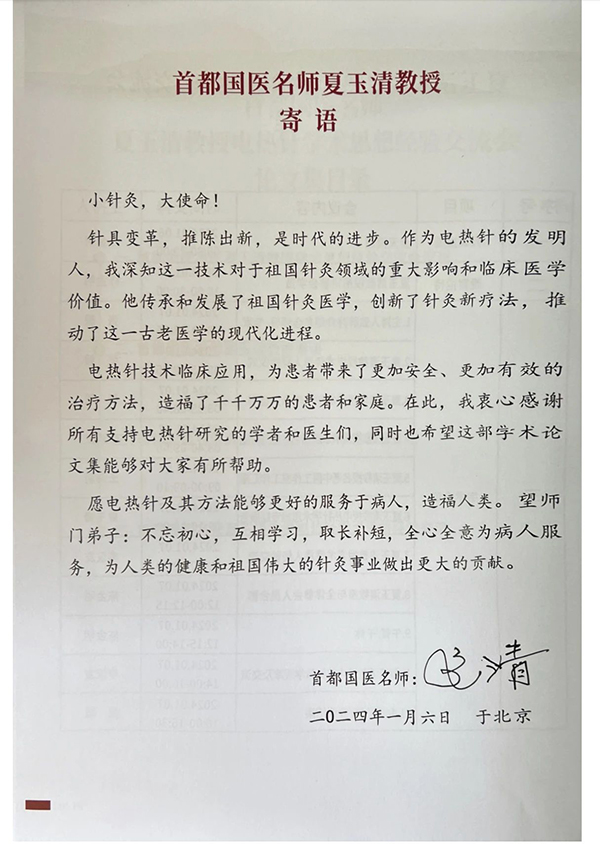 首都国医名师夏玉清教授
寄语
小针灸，大使命！
针具变革，推陈出新，是时代的进步。作为电热针的发明
人，我深知这一技术对于祖国针灸领域的重大影响和临床医学
价值。他传承和发展了祖国针灸医学，创新了针灸新疗法，推
动了这一古老医学的现代化进程。
电热针技术临床应用，为患者带来了更加安全、更加有效的
治疗方法，造福了千千万万的患者和家庭。在此，我衷心感谢
所有支持电热针研究的学者和医生们，同时也希望这部学术论
文集能够对大家有所帮助。
愿电热针及其方法能够更好的服务于病人，造福人类。望师
门弟子：不忘初心，互相学习，取长补短，全心全意为病人服
务，为人类的健康和祖国伟大的针灸事业做出更大的贡献。
首都国医名师：
二〇二四年一月六日 于北京